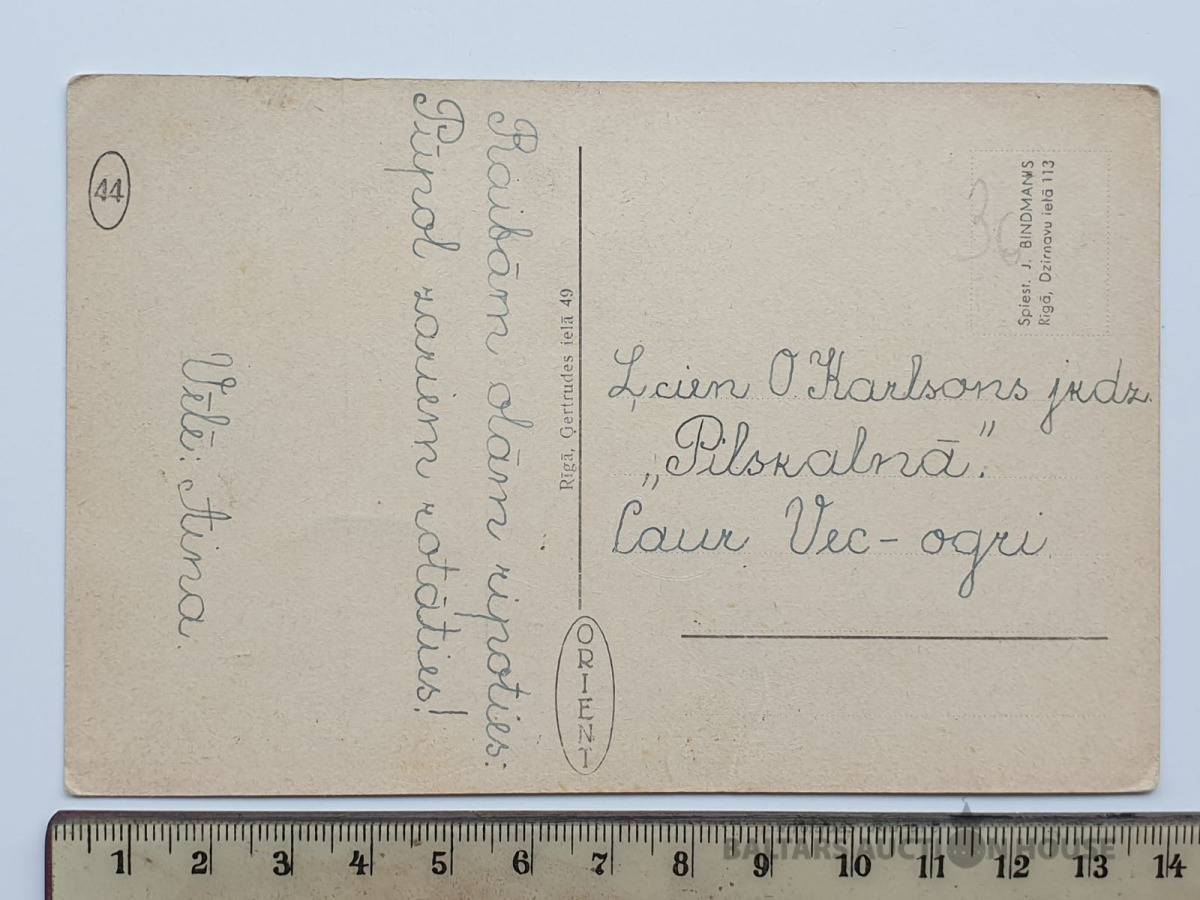 44
Raibām olām ripoties:
Pūpol zariem rotāties!
Vēlē: Aina.
Rīgā, Ģertrudes ielā 49
ORIENT
Spiest. J. BINDMANIS
Rīgā, Dzirnavu ielā 113
36
Ļcien O. Karlsons jkdz.
„Pilskalnā."
Caur Vec-ogri
BALTARS AUCTION HOUSE
1 2 3 4 5 6 7 8 9 10 11 12 13 14